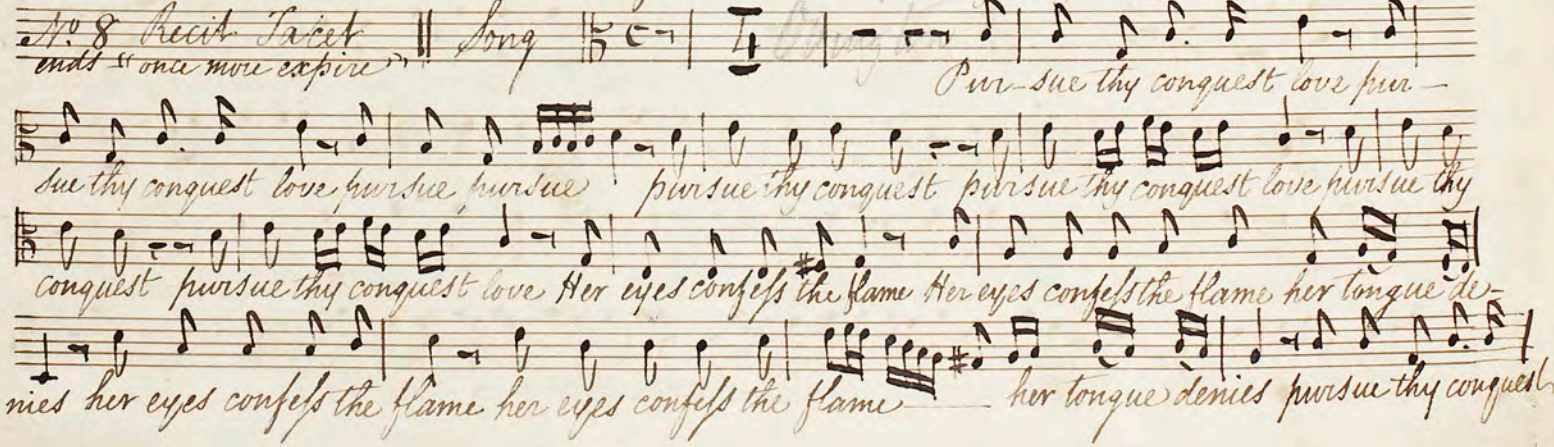 No. 8 Recit Tacet Song
ends "once more expire"
Pur-sue thy conquest love pur-
sue thy conquest love pursue pursue pursue thy conquest pursue thy conquest love pursue thy
conquest pursue thy conquest love Her eyes confess the flame Her eyes confess the flame her tongue de-
nies her eyes confess the flame her eyes confess the flame her tongue denies pursue thy conquest